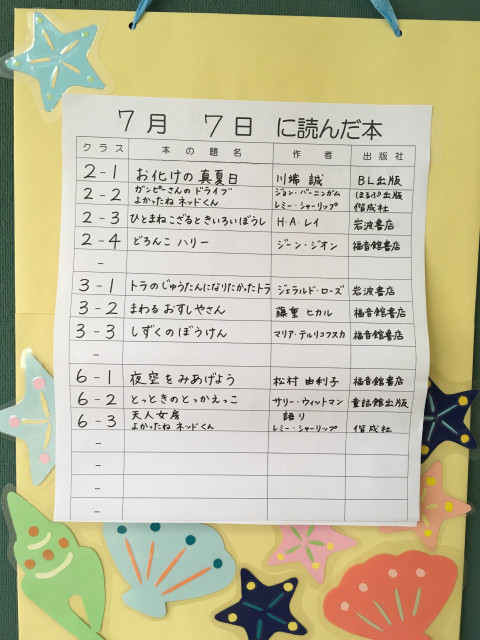 7月 7日 に読んだ本
クラス 本の題名 作者 出版社
2-1 お化けの真夏日 川端 誠 BL出版
2-2 ガンピーさんのドライブ ジョン・バーニンガム ほるぷ出版
よかったね ネッドくん レミー・シャーリップ 偕成社
2-3 ひとまねこざるときいろいぼうし H・A・レイ 岩波書店
2-4 どろんこ ハリー ジーン・ジオン 福音館書店
-
3-1 トラのじゅうたんになりたかったトラ ジェラルド・ローズ 岩波書店
3-2 まわる おすしやさん 藤重 ヒカル 福音館書店
3-3 しずくのぼうけん マリア・テルリコフスカ 福音館書店
-
6-1 夜空をみあげよう 松村 由利子 福音館書店
6-2 とっときのとっかえっこ サリー・ウィットマン 童話館出版
6-3 天人女房 語り
よかったね ネッドくん レミー・シャーリップ 偕成社
-
-
-
-